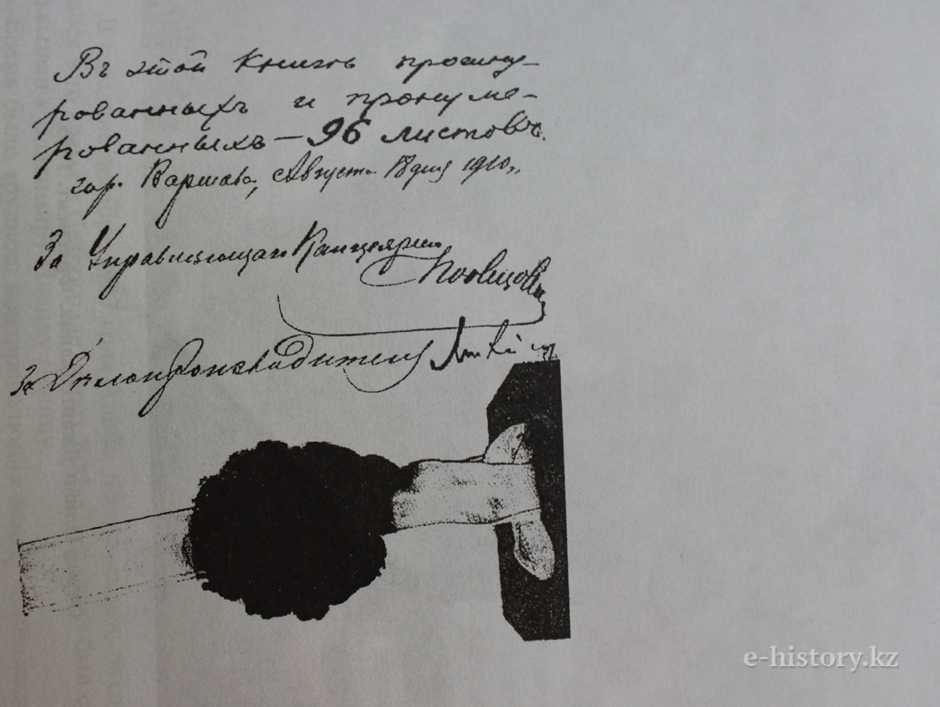 Въ этой Книгѣ прошну-
рованныхъ и пронуме-
рованныхъ — 96 листовъ.
гор. Варшава, Августа 18 дня 1910 г.
За Управляющаго Канцеляріею
За Дѣлопроизводителя
e-history.kz